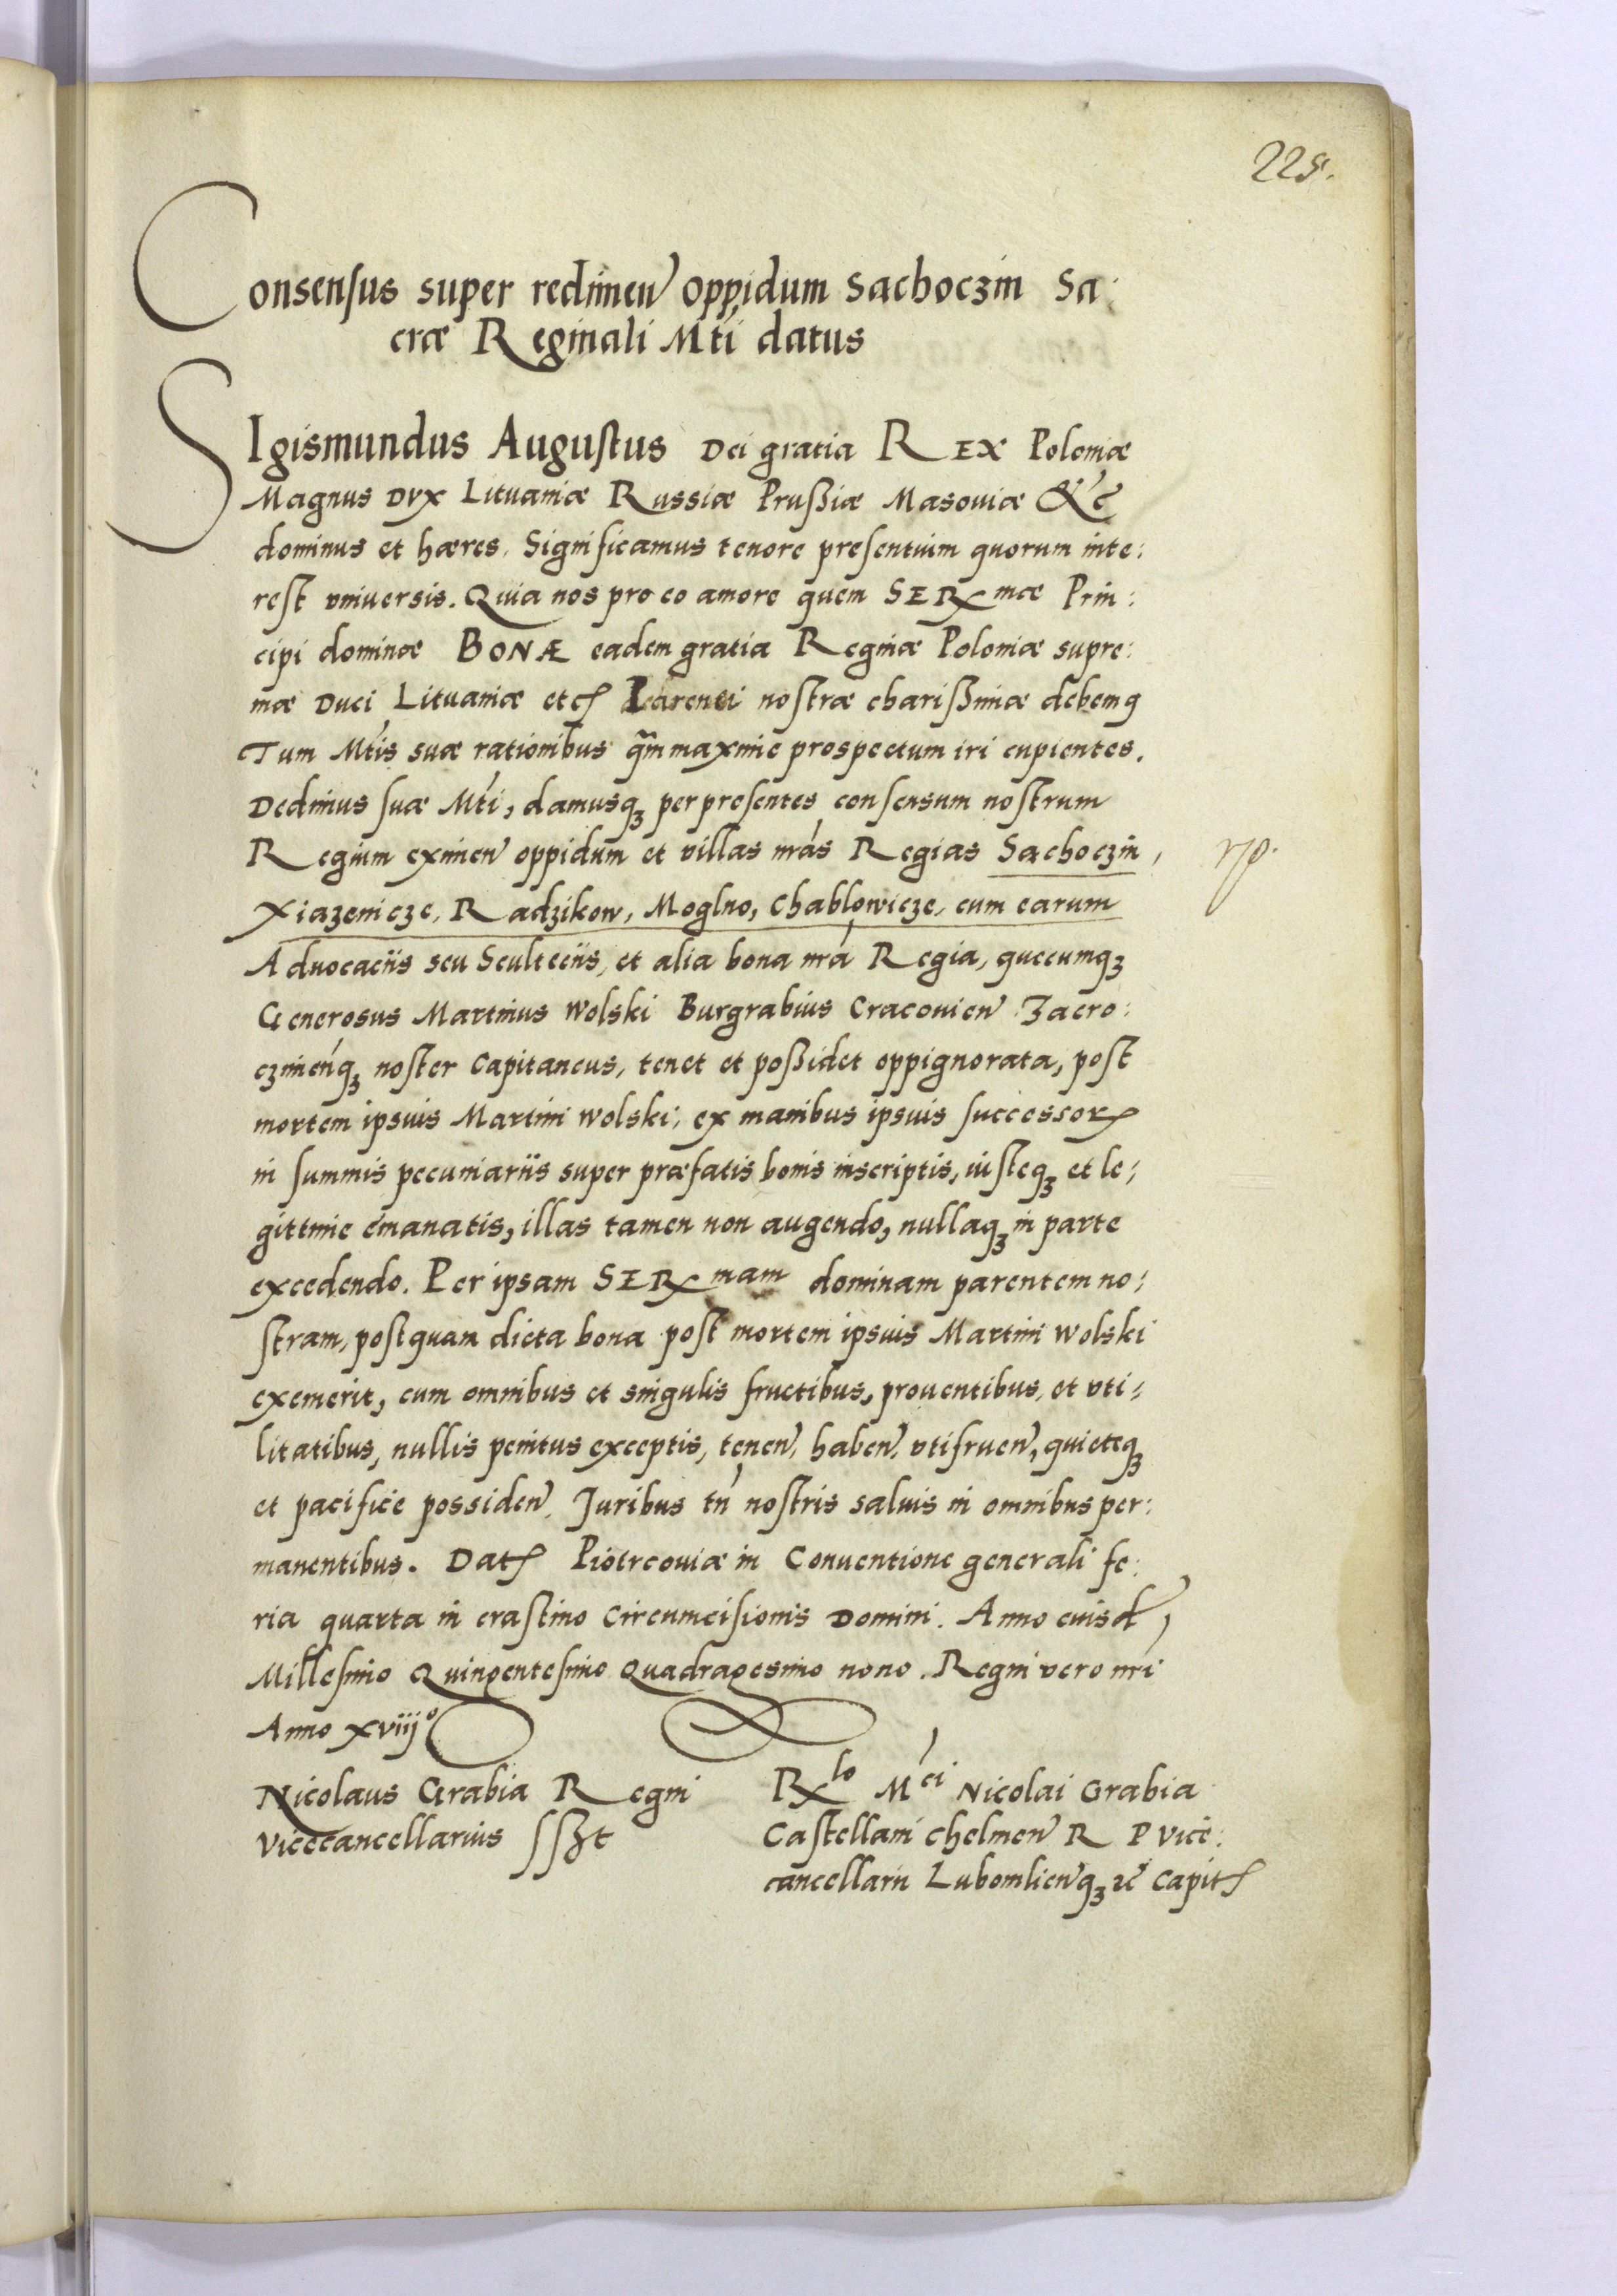 225.
Consensus super redimen̄ oppidum Sachoczin Sa:
cræ Reginali Mti datus
SIgismundus Augustus Dei gratia REX Poloniæ
Magnus Dvx Lituaniæ Russiæ Prußiæ Masouiæ &c
dominus et hæres. Significamus tenore presentium quorum inte:
rest vniuersis. Quia nos pro eo amore quem SERmæ Prin:
cipi dominæ BONÆ eadem gratia Reginæ Poloniæ supre:
mæ Duci Lituaniæ etc Parenti nostræ charißimæ debemq
Tum Mtis suæ rationibus q̃m maxime prospectum iri cupientes.
Dedimus suæ Mti, damusqꝫ per presentes consensum nostrum
Regium eximen̄ oppidum et villas nr̃as Regias Sachoczin,
Xiazenicze, Radzikow, Moglno, Chablowicze, cum earum
Aduocaciis seu Sculteciis, et alia bona nr̃a Regia, quecumqꝫ
Generosus Martinus Wolski Burgrabius Cracouien̄ Zacro:
czimen̄qꝫ noster Capitaneus, tenet et poßidet oppignorata, post
mortem ipsius Martini Wolski, ex manibus ipsius successorꝝ
in summis pecuniariis super præfatis bonis inscriptis, iusteqꝫ et le:
gittime emanatis, illas tamen non augendo, nullaqꝫ in parte
excedendo. Per ipsam SERmam dominam parentem no:
stram, postquam dicta bona post mortem ipsius Martini Wolski
exemerit, cum omnibus et singulis fructibus, prouentibus, et vti:
litatibus, nullis penitus exceptis, tenen̄, haben̄, vtifruen̄, quieteqꝫ
et pacifice possiden̄. Juribus tn̄ nostris saluis in omnibus per:
manentibus. Dat Piotrcouiæ in Conuentione generali fe:
ria quarta in crastino Circumcisionis Domini. Anno eiusd̄,
Millesimo Quingentesimo Quadragesimo nono. Regni vero nr̃i
Anno xviijo
Nicolaus Grabia Regni
Vicecancellarius sszt
Rlo Mci Nicolai Grabia
Castellani Chelmen̄ R P Vice:
cancellarii Lubomlien̄qꝫ ꝛc̃ Capit